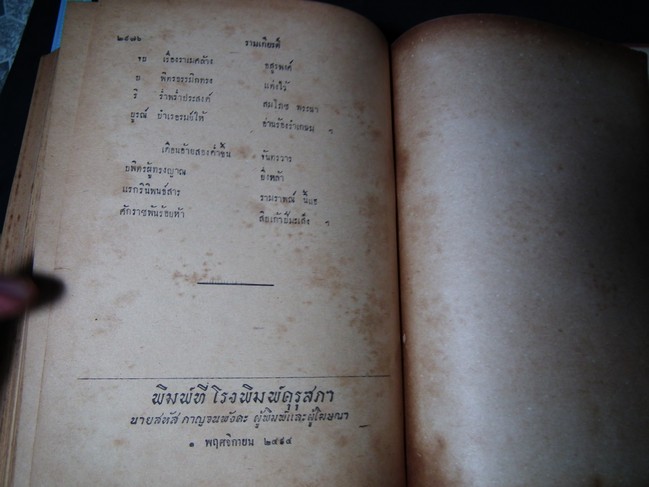 ๒๙๘๖ รามเกียรติ์
จบ เรื่องราเมศล้าง อสุรพงศ์
บ พิตรธรรมิกทรง แต่งไว้
ริ ร่ำพร่ำประสงค์ สมโภช พระนา
บูรณ์ บำเรอรมย์ให้ อ่านร้องรำเกษม ฯ
เดือนอ้ายสองค่ำขึ้น จันทรวาร
บพิตรผู้ทรงญาณ ยิ่งหล้า
แรกรินิพนธ์สาร รามราพณ์ นี้แฮ
ศักราชพันร้อยห้า สิบเก้าปีมะเส็ง ฯ
พิมพ์ที่ โรงพิมพ์คุรุสภา
นายสหัส กาญจนพังคะ ผู้พิมพ์และผู้โฆษณา
๑ พฤศจิกายน ๒๔๙๔